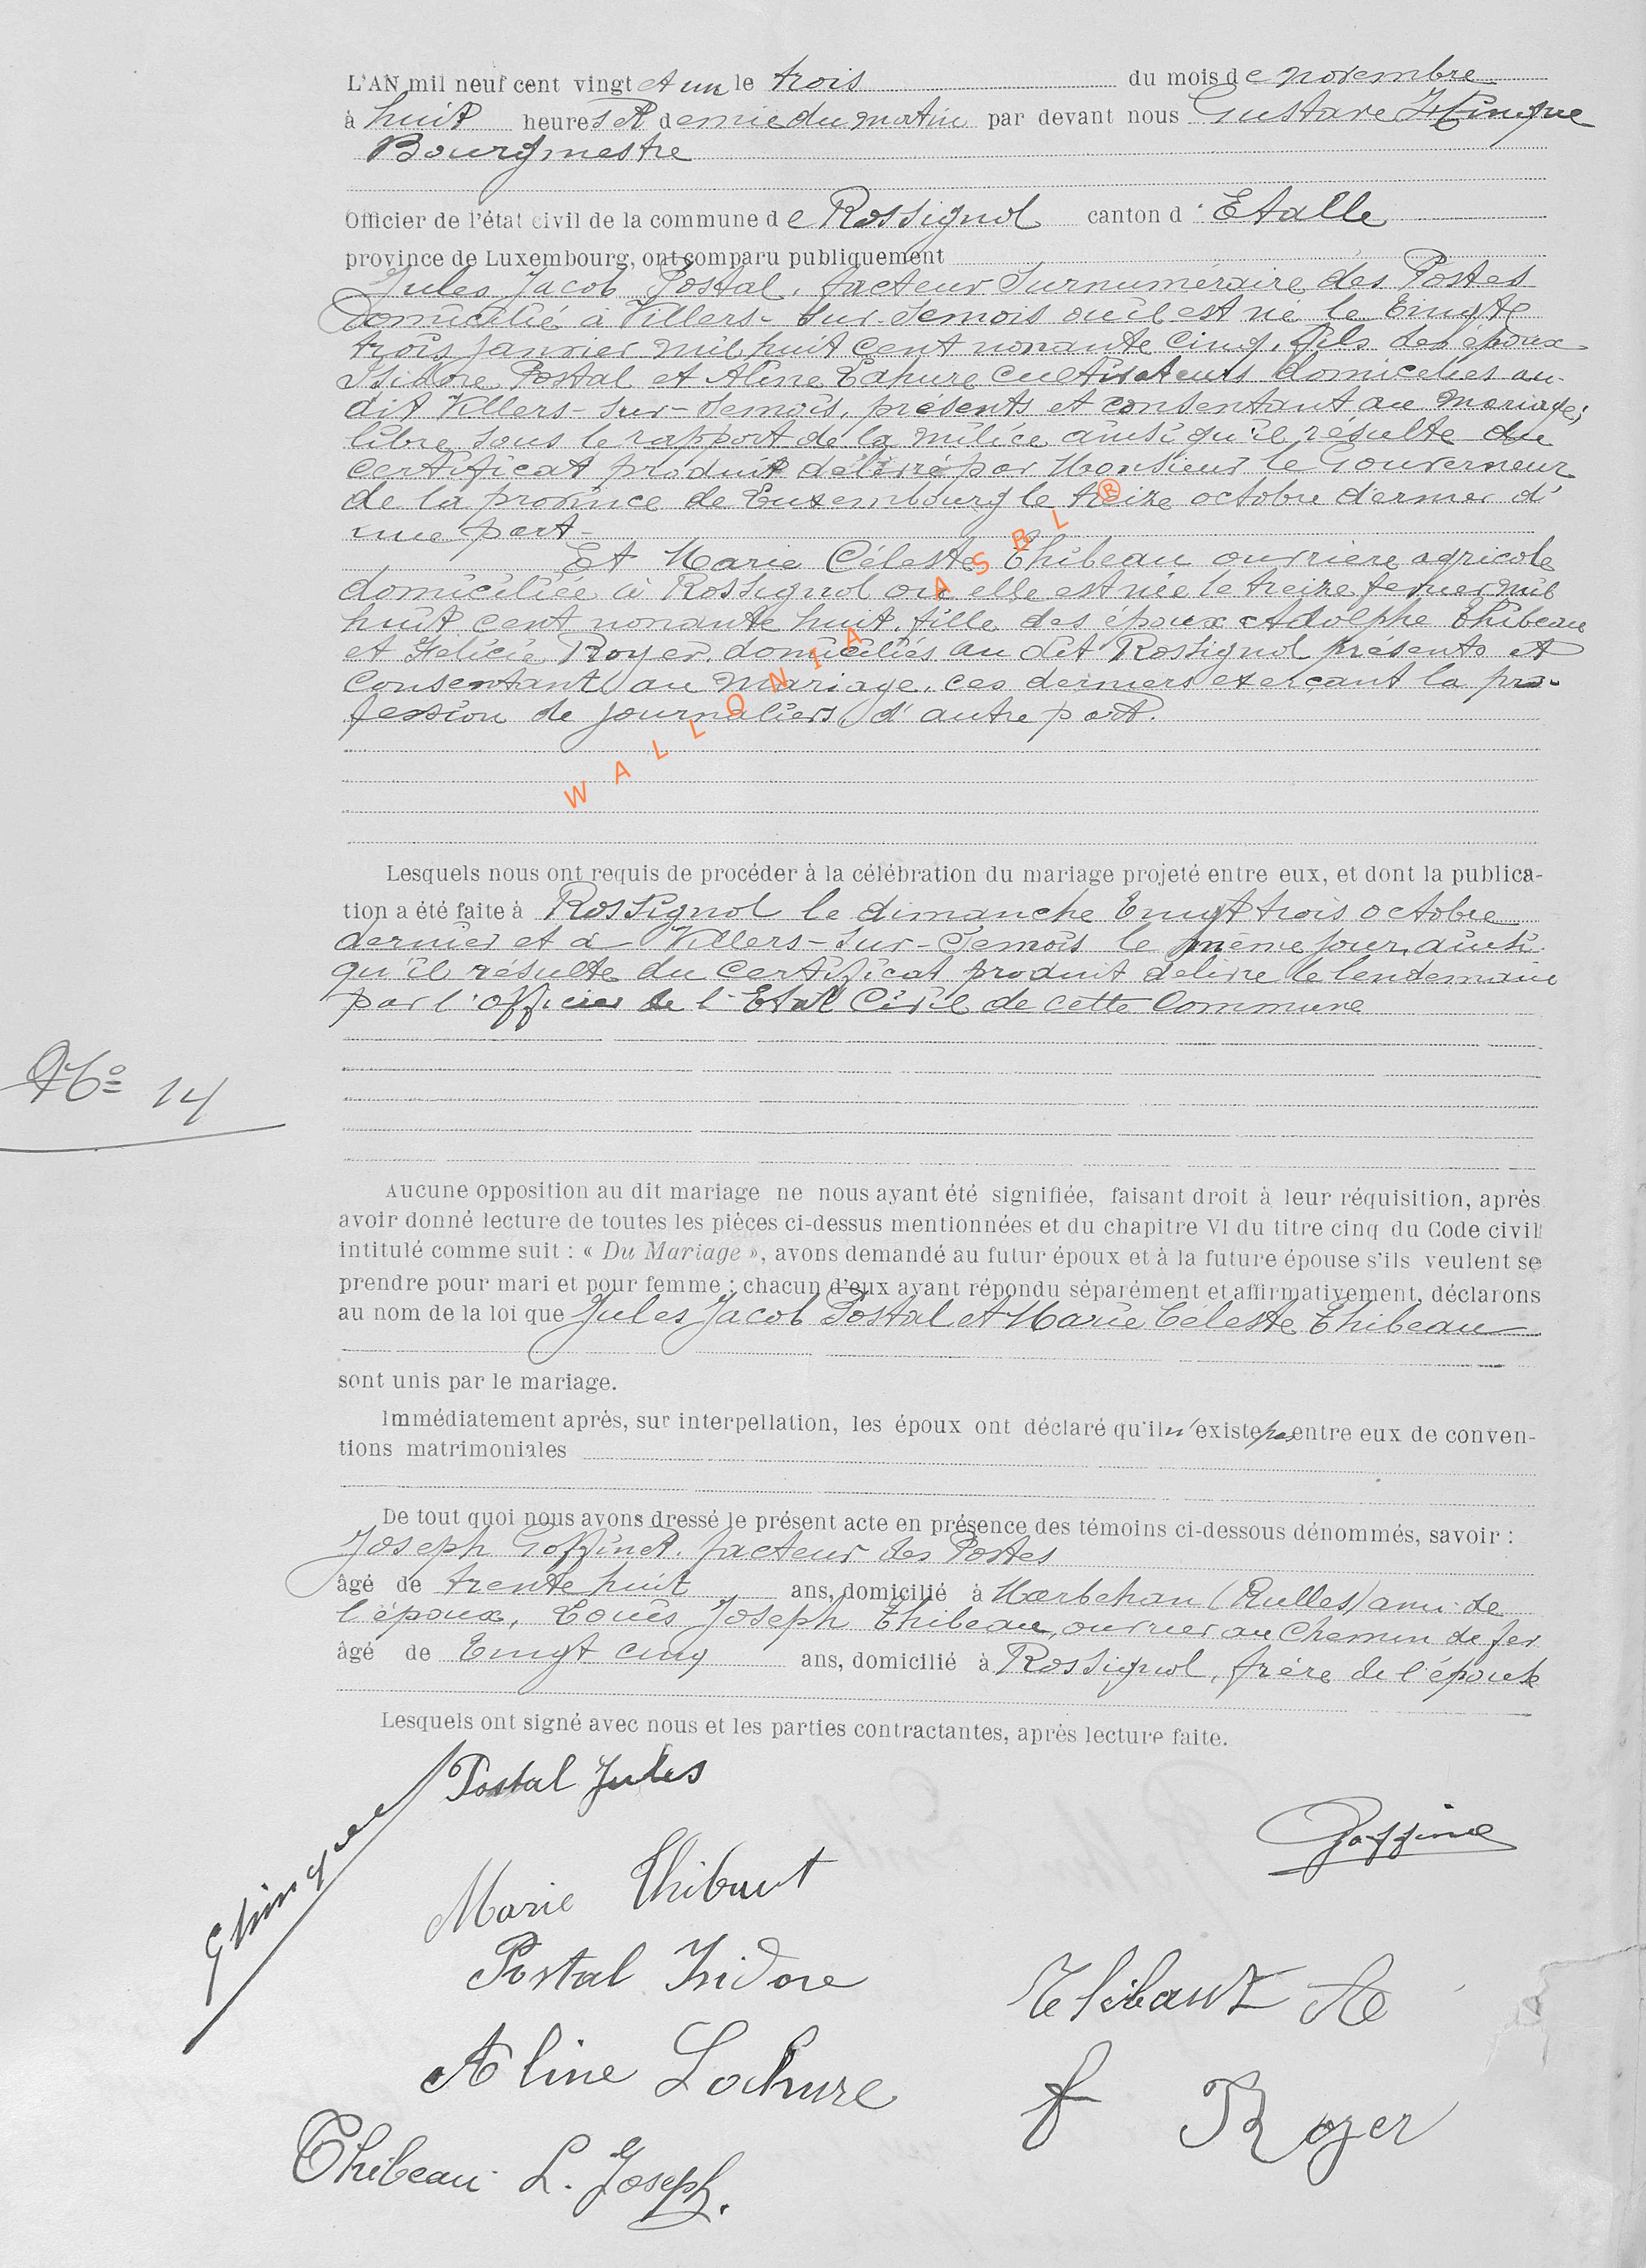 L'AN mil neuf cent vingt et un le trois du mois de novembre
à huit heures et demie du matin par devant nous Gustave
Bourgmestre
Officier de l'état civil de la commune de Rossignol canton d'Etalle
province de Luxembourg, ont comparu publiquement
Jules Jacob Postal, facteur surnuméraire des Postes
domicilié à Villers-sur-Semois où il est né le vingt
trois janvier mil huit cent nonante cinq, fils des époux
Isidore Postal et Aline Lahure cultivateurs domiciliés au
dit Villers-sur-Semois, présents et consentant au mariage;
libre sous le rapport de la milice ainsi qu'il résulte du
certificat produit délivré par Monsieur le Gouverneur
de la province de Luxembourg le treize octobre dernier d'
une part-
Et Marie Céleste Thibeau ouvrière agricole
domiciliée à Rossignol où elle est née le treize fevrier mil
huit cent nonante huit, fille des époux Adolphe Thibeau
et Félicie Royer, domiciliés au dit Rossignol présents et
consentant au mariage, ces derniers exerçant la pro-
fession de journaliers, d'autre part.
WALLONIA ASBL ®
Lesquels nous ont requis de procéder à la célébration du mariage projeté entre eux, et dont la publica-
tion a été faite à Rossignol le dimanche vingt trois octobre
dernier et à Villers-sur-Semois le même jour, ainsi
qu'il résulte du certificat produit délivré le lendemain
par l'officier de l'Etat Civil de cette commune
N° 14
Aucune opposition au dit mariage ne nous ayant été signifiée, faisant droit à leur réquisition, après
avoir donné lecture de toutes les pièces ci-dessus mentionnées et du chapitre VI du titre cinq du Code civil
intitulé comme suit : « Du Mariage », avons demandé au futur époux et à la future épouse s'ils veulent se
prendre pour mari et pour femme ; chacun d'eux ayant répondu séparément et affirmativement, déclarons
au nom de la loi que Jules Jacob Postal et Marie Céleste Thibeau
sont unis par le mariage.
Immédiatement après, sur interpellation, les époux ont déclaré qu'il n'existe pas entre eux de conven-
tions matrimoniales
De tout quoi nous avons dressé le présent acte en présence des témoins ci-dessous dénommés, savoir :
Joseph Goffinet, facteur des Postes
âgé de trente huit ans, domicilié à Marbehan (Rulles) ami de
l'époux, Louis Joseph Thibeau, ouvrier au Chemin de fer
âgé de vingt cinq ans, domicilié à Rossignol, frère de l'épouse
Lesquels ont signé avec nous et les parties contractantes, après lecture faite.
Postal Jules
Goffine
Marie Thibaut
Postal Isidore
Thibaut A
Aline Lahure
f Royer
Thibeau L. Joseph.